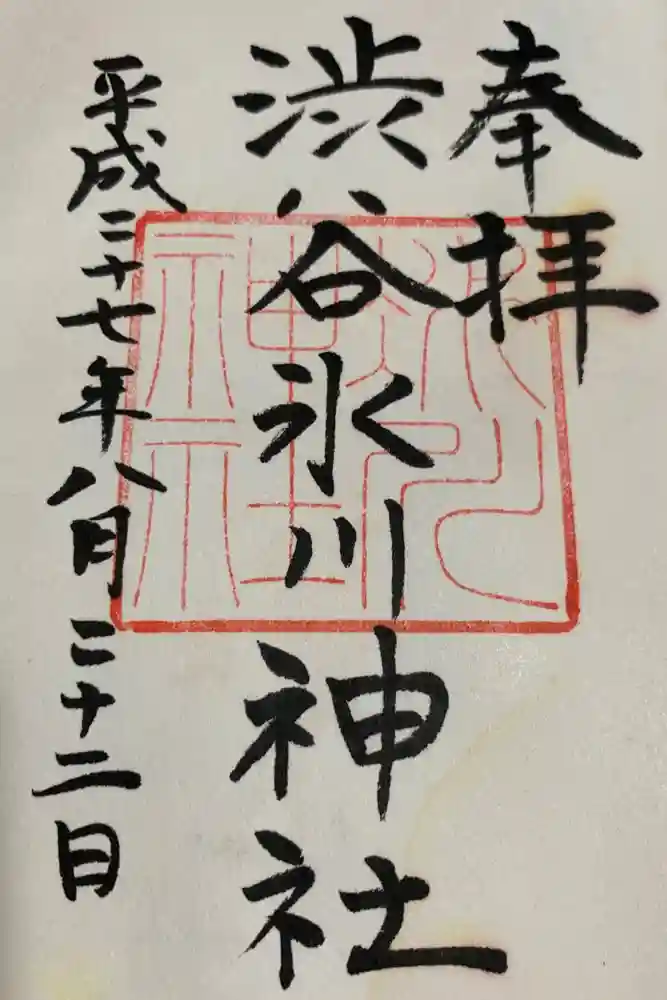 奉拝
渋谷氷川神社
平成二十七年八月二十二日